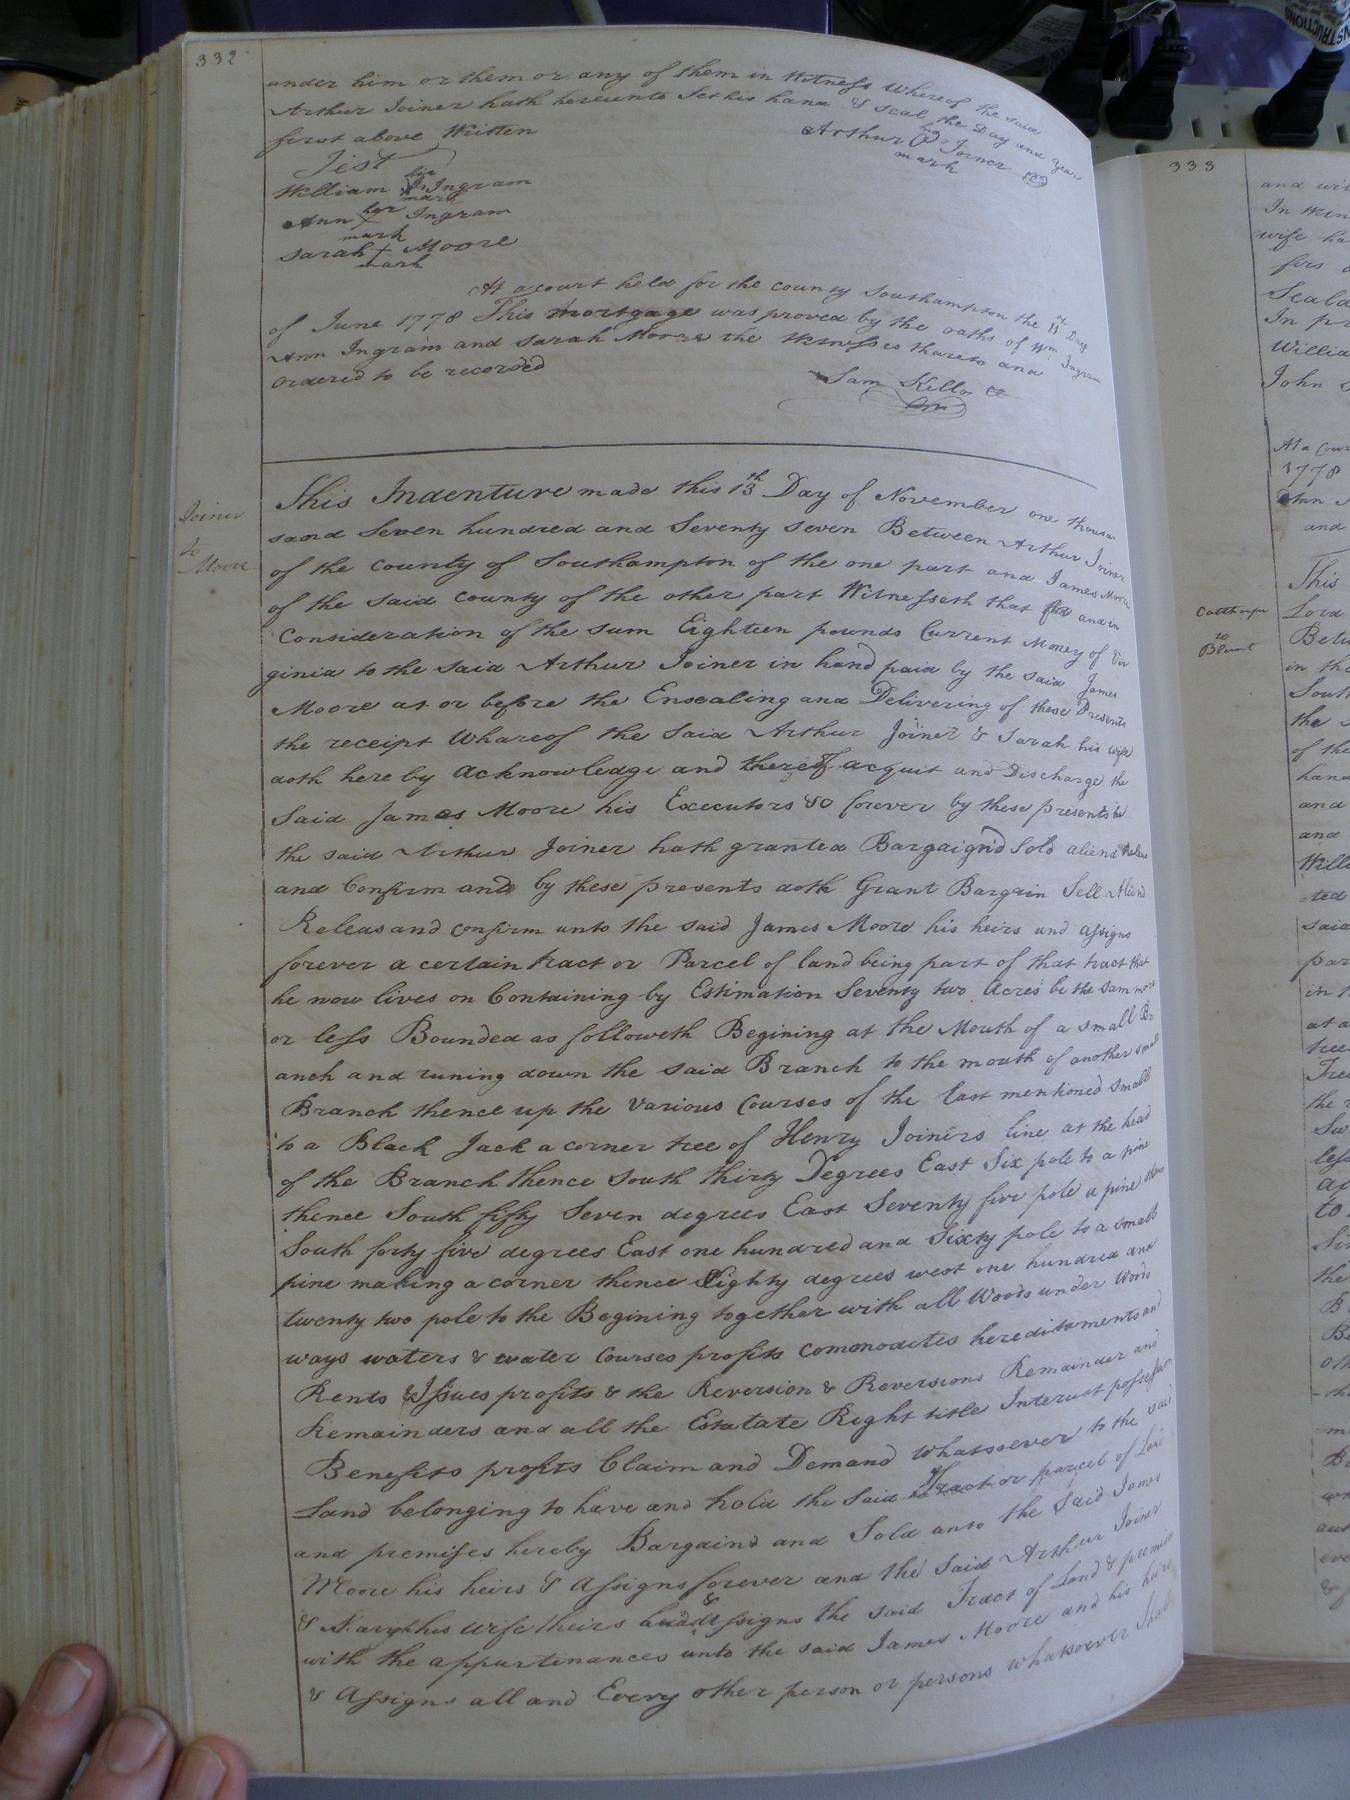 332
under him or them or any of them in Witness Whereof the said
Arthur Joiner hath hereunto Set his hand & seal the Day and year
first above Written
Arthur his Joiner
mark
Test
William his Ingram
mark
Ann her Ingram
mark
Sarah + Moore
mark
At a court held for the county Southampton the 11th Day
of June 1778 This Mortgage was proved by the oaths of Wm Ingram
Ann Ingram and Sarah Moore the Witnesses thareto and
ordered to be recorded
Sam Kello
Joiner
to
Moore
This Indenture made this 13th Day of November one thousan
sand Seven hundred and Seventy seven Between Arthur Joiner
of the county of Southampton of the one part and James Moore
of the said county of the other part Witnesseth that for and in
Consideration of the sum Eighteen pounds Current Money of Vir
ginia to the said Arthur Joiner in hand paid by the said James
Moore at or before the Ensealing and Delivering of these Presents
the receipt Whareof the said Arthur Joiner & Sarah his wife
doth here by acknowledge and thereof acquit and Discharge the
Said James Moore his Executors &c forever by these presents he
the said Arthur Joiner hath granted Bargaignd Sold aliend Releas
and Confirm and by these presents doth Grant Bargain Sell Aliend
Releas and confirm unto the said James Moore his heirs and assigns
forever a certain tract or Parcel of land being part of that tract that
he now lives on Containing by Estimation Seventy two Acres be the sam more
or less Bounded as followeth Begining at the Mouth of a small Br
anch and runing down the said Branch to the mouth of another small
Branch thence up the various Courses of the last mentioned small
to a Black Jack a corner tree of Henry Joiners line at the head
of the Branch thence South thirty Degrees East Six pole to a pine
thence South fifty Seven degrees East Seventy five pole a pine thence
South forty five degrees East one hundred and Sixty pole to a small
pine making a corner thence Eighty degrees west one hundred and
twenty two pole to the Begining together with all Woods under Woods
ways waters & water Courses profits commonodites hereditaments and
Rents & Issues profits & the Reversion & Reversions Remainder and
Remainders and all the Estatate Right title Interust possession
Benefits profits Claim and Demand whatsoever to the said
Land belonging to have and hold the said Tract or parcel of Land
and premises hereby Bargaind and Sold unto the said James
Moore his heirs & Assigns forever and the said Arthur Joiner
& Saryh his Wife theirs & assigns the said Tract of Land & premises
with the appurtinances unto the said James Moore and his heirs
& Assigns all and Every other person or persons whatsoever Shall
333
and wi
In
wife ha
Seale
In pr
Willia
John
At a Cour
1778
Ann
and
to
Blunt
This
Lord
Betw
in the
South
the
of the
hand
and
and
Wille
ted
said
par
at a
tree
the
less
to
the